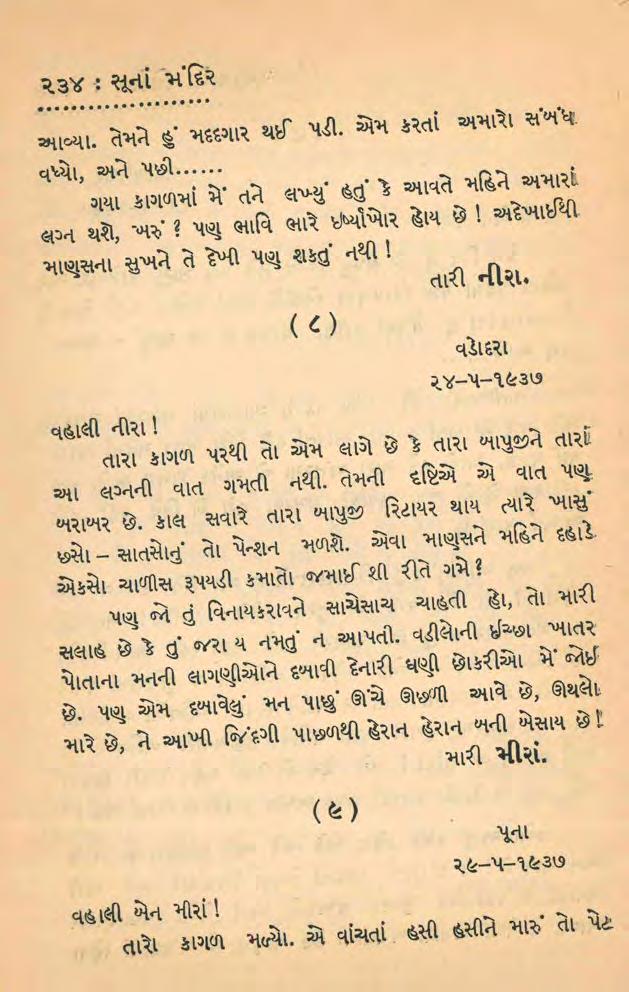 ૨૩૪ : સૂનાં મંદિર
આવ્યા. તેમને હું મદદગાર થઈ પડી. એમ કરતાં અમારો સંબંધ
વધ્યો, અને પછી......
ગયા કાગળમાં મેં તને લખ્યું હતું કે આવતે મહિને અમારાં
લગ્ન થશે, ખરું ? પણ ભાવિ ભારે ઈર્ષ્યાખોર હોય છે ! અદેખાઈથી
માણસના સુખને તે દેખી પણ શકતું નથી !
તારી નીરા.
( ૮ )
વડોદરા
૨૪–૫–૧૯૩૭
વહાલી નીરા !
તારા કાગળ પરથી તો એમ લાગે છે કે તારા બાપુજીને તારાં
આ લગ્નની વાત ગમતી નથી. તેમની દૃષ્ટિએ એ વાત પણ
બરાબર છે. કાલ સવારે તારા બાપુજી રિટાયર થાય ત્યારે ખાસું
છસો – સાતસોનું તો પેન્શન મળશે. એવા માણસને મહિને દહાડે
એકસો ચાળીસ રૂપયડી કમાતો જમાઈ શી રીતે ગમે ?
પણ જો તું વિનાયકરાવને સાચેસાચ ચાહતી હો, તો મારી
સલાહ છે કે તું જરા ય નમતું ન આપતી. વડીલોની ઈચ્છા ખાતર
પોતાના મનની લાગણીઓને દબાવી દેનારી ઘણી છોકરીઓ મેં જોઈ
છે. પણ એમ દબાવેલું મન પાછું ઊંચે ઊછળી આવે છે, ઊથલો
મારે છે, ને આખી જિંદગી પાછળથી હેરાન હેરાન બની બેસાય છે !
મારી મીરાં.
( ૯ )
પૂના
૨૯–૫–૧૯૩૭
વહાલી બેન મીરાં !
તારો કાગળ મળ્યો. એ વાંચતાં હસી હસીને મારું તો પેટ